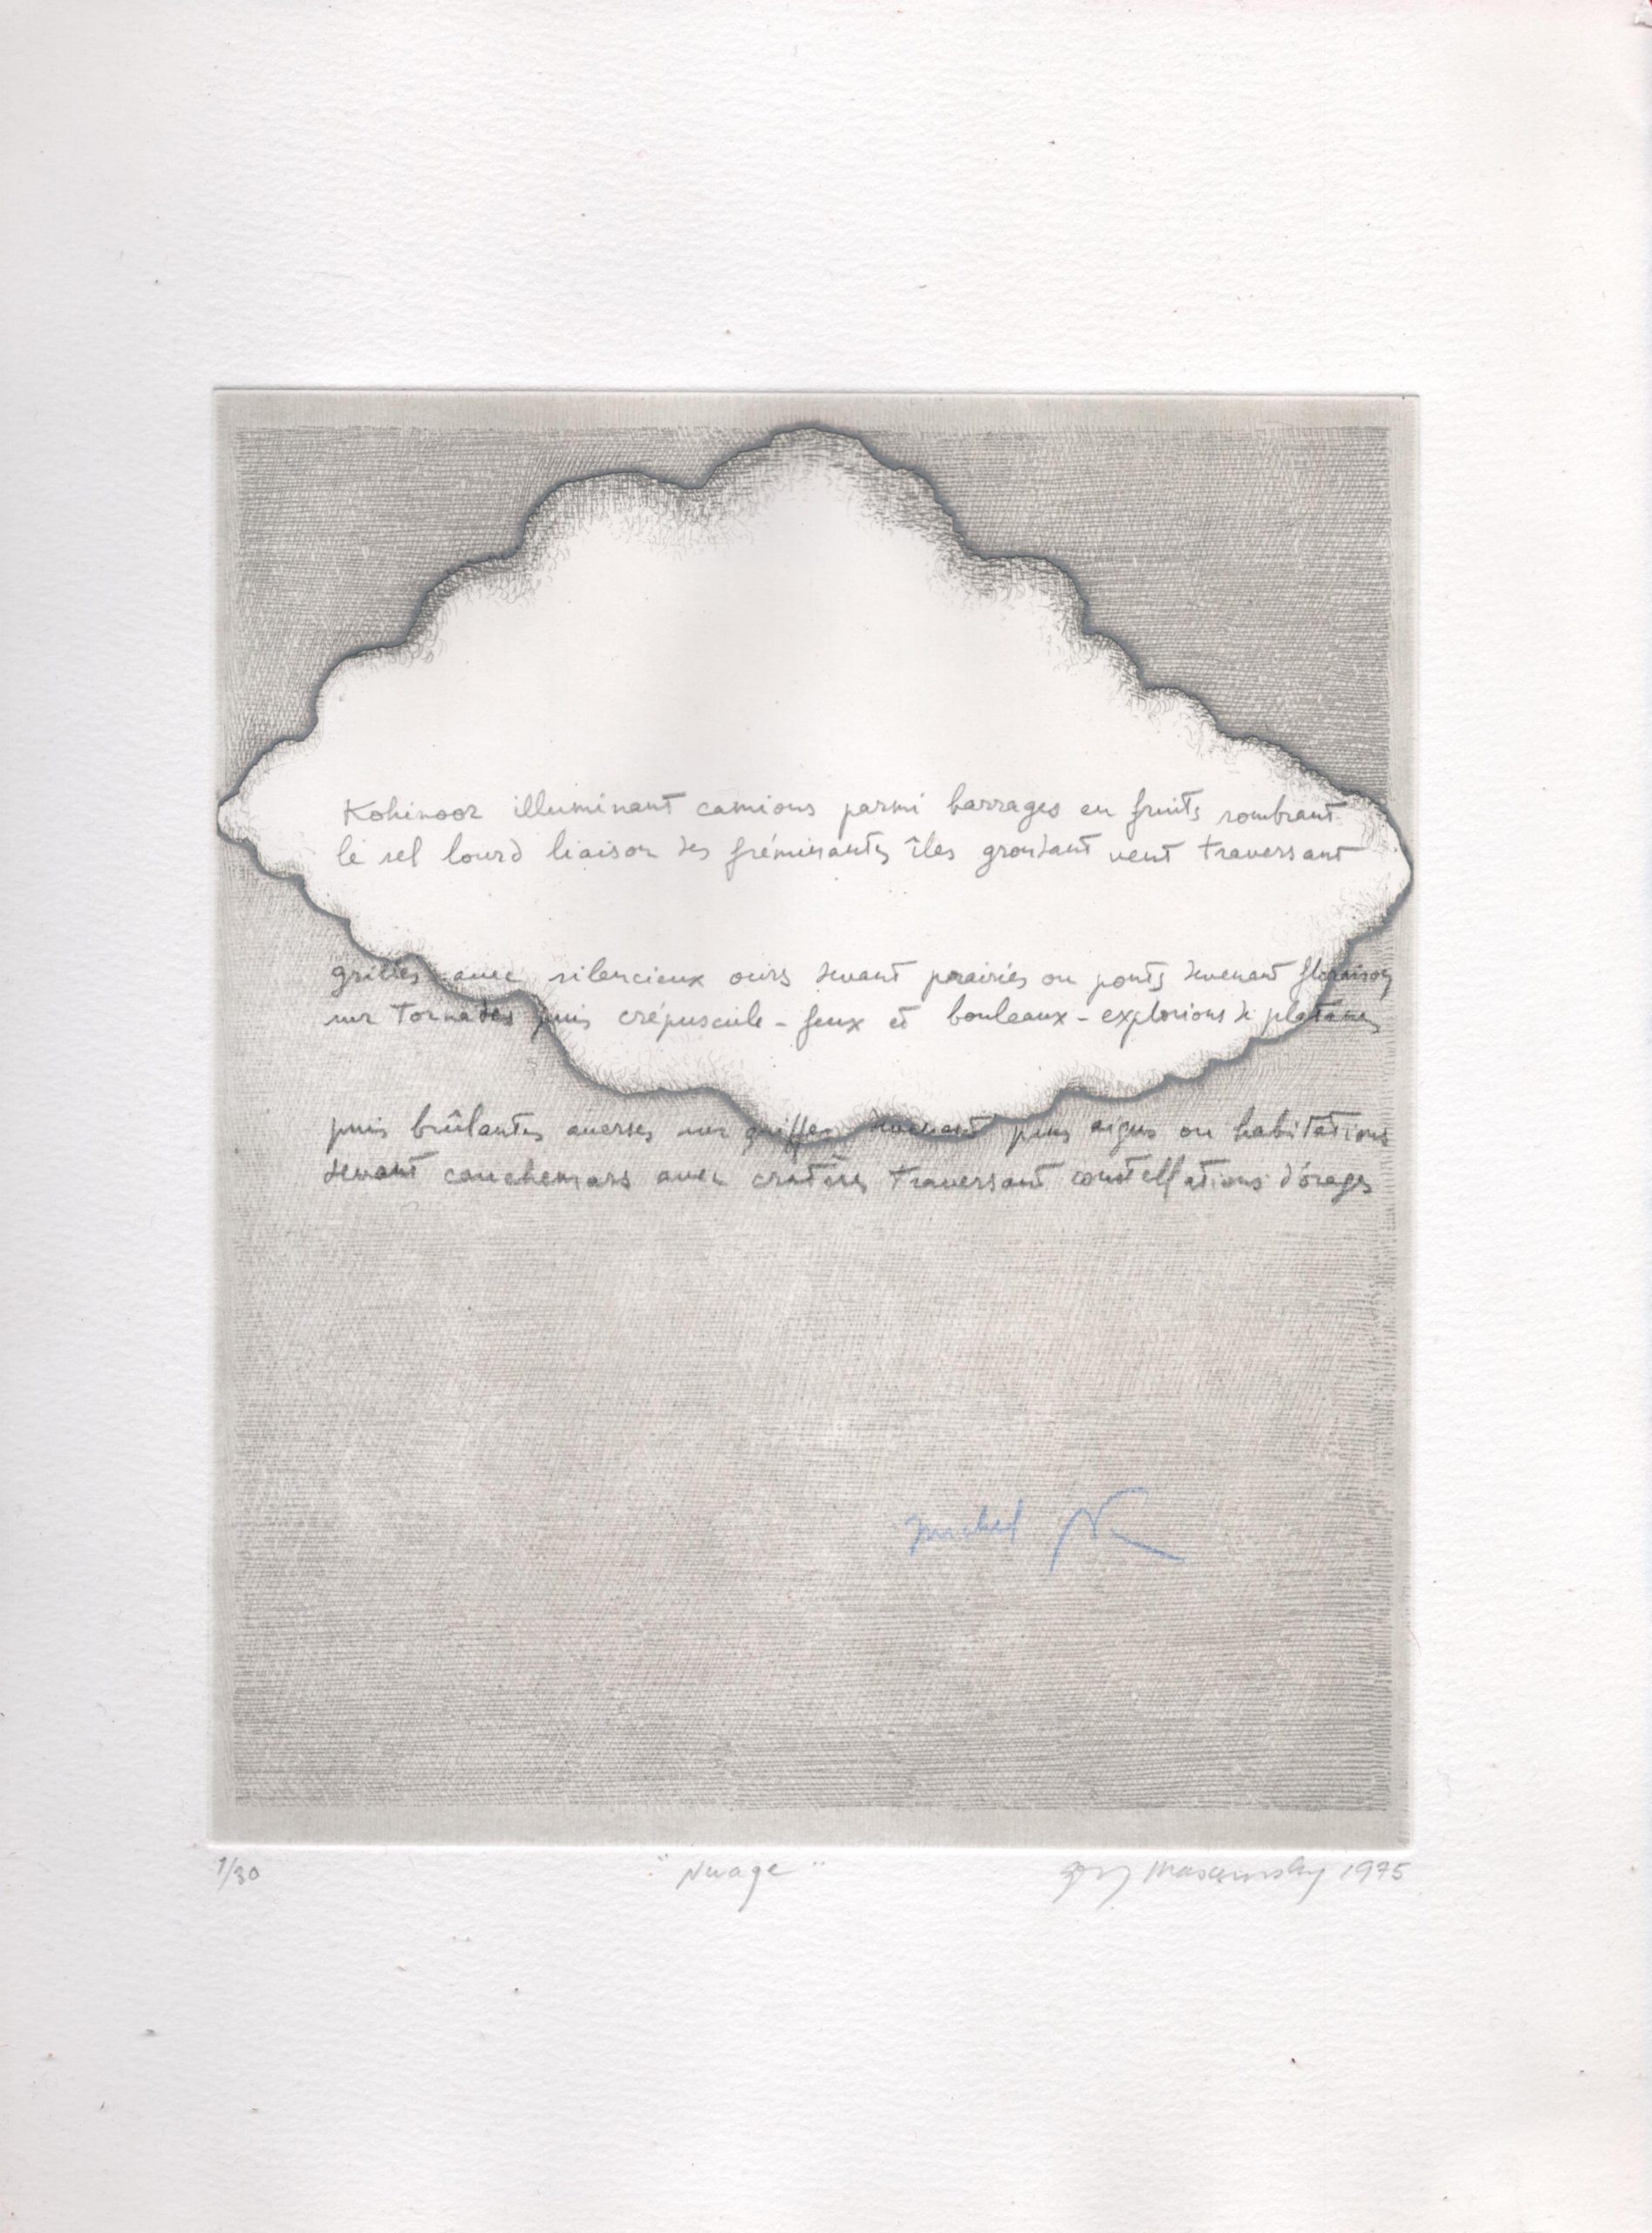 Kohinoor illuminant camions parmi barrages en fruits sombrant
le sel lourd liaison des frémissantes îles grondant vent traversant
grilles avec silencieux ours devant prairies ou ponts devenant floraison
sur tornades puis crépuscule - feux et bouleaux - explosions de platanes
puis brûlantes averses sur griffes devenant plus aigus ou habitations
devant cauchemars avec cratères traversant constellations d'orages
Michel
1/30 "Nuage" 1975